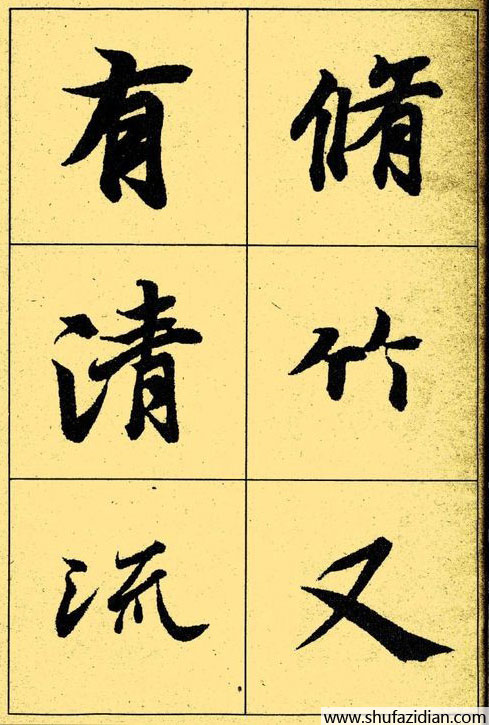 脩竹又
有清流
www.shufazidian.com